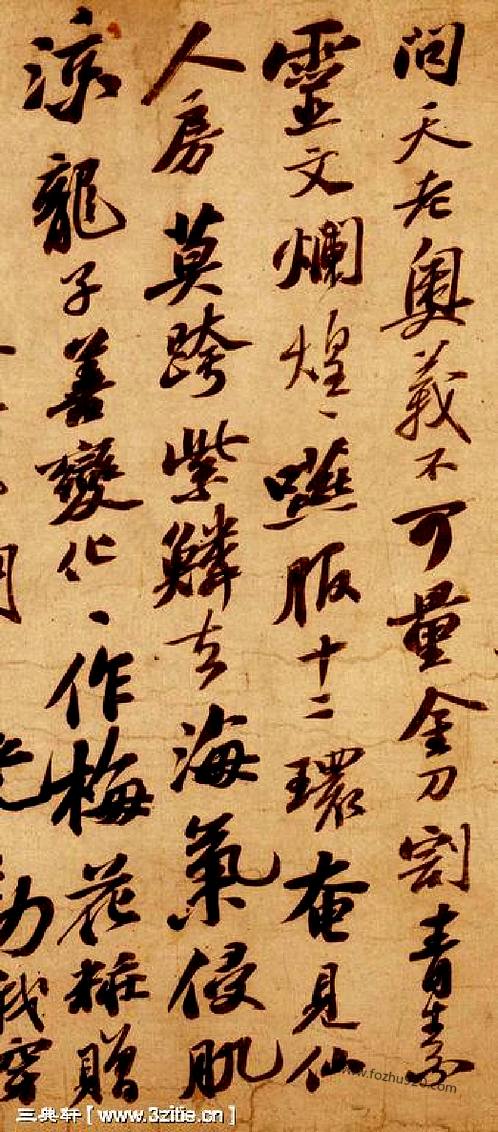 問天老奧義不可量金刀割青素
靈文爛煌〻嚥服十二環奄見仙
人房莫跨紫鱗去海氣侵肌
涼龍子善變化〻作梅花粧贈
我穿
www.fozhu920.com
三典轩【www.3zitie.cn】